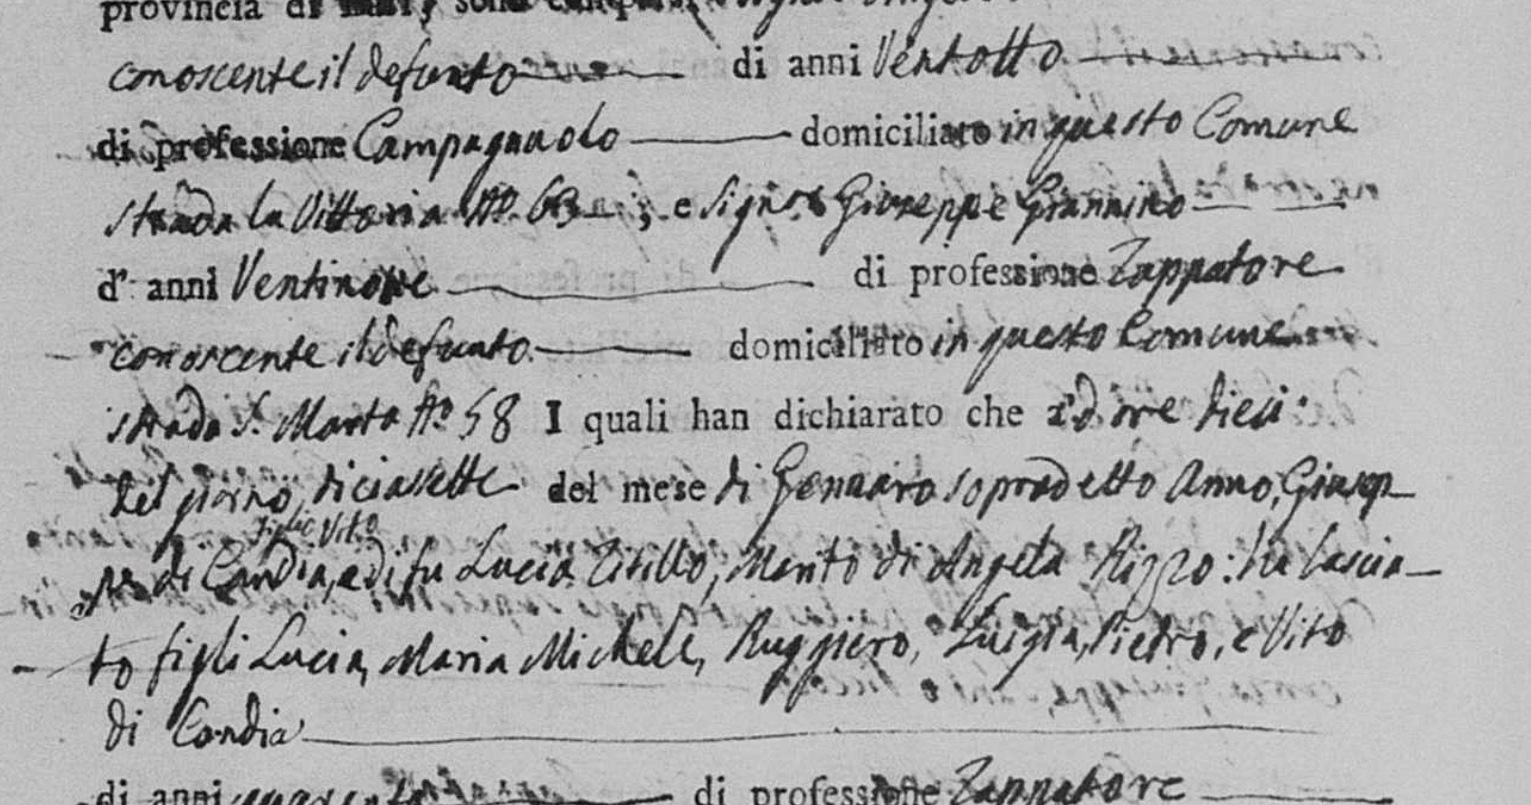 provincia di
conoscente il defunto di anni Ventotto
di professione Campagnuolo domiciliato in questo Comune
strada la Vittoria No. 63 ; e Signor Giuseppe Giannino
d' anni Ventinove di professione Zappatore
conoscente il defunto domiciliato in questo Comune
strada S. Marta No. 58 I quali han dichiarato che ad ore dieci
del giorno diciasette del mese di Gennaro sopradetto Anno, Giusep-
figlio Vito
pe di Candia, e di fu Lucia Titillo, Marito di Angela Rizzo: ha lascia-
to figli Lucia, Maria Michele, Ruggiero, Luigia, Pietro, e Vito
di Candia
di anni quaranta di professione Zappatore